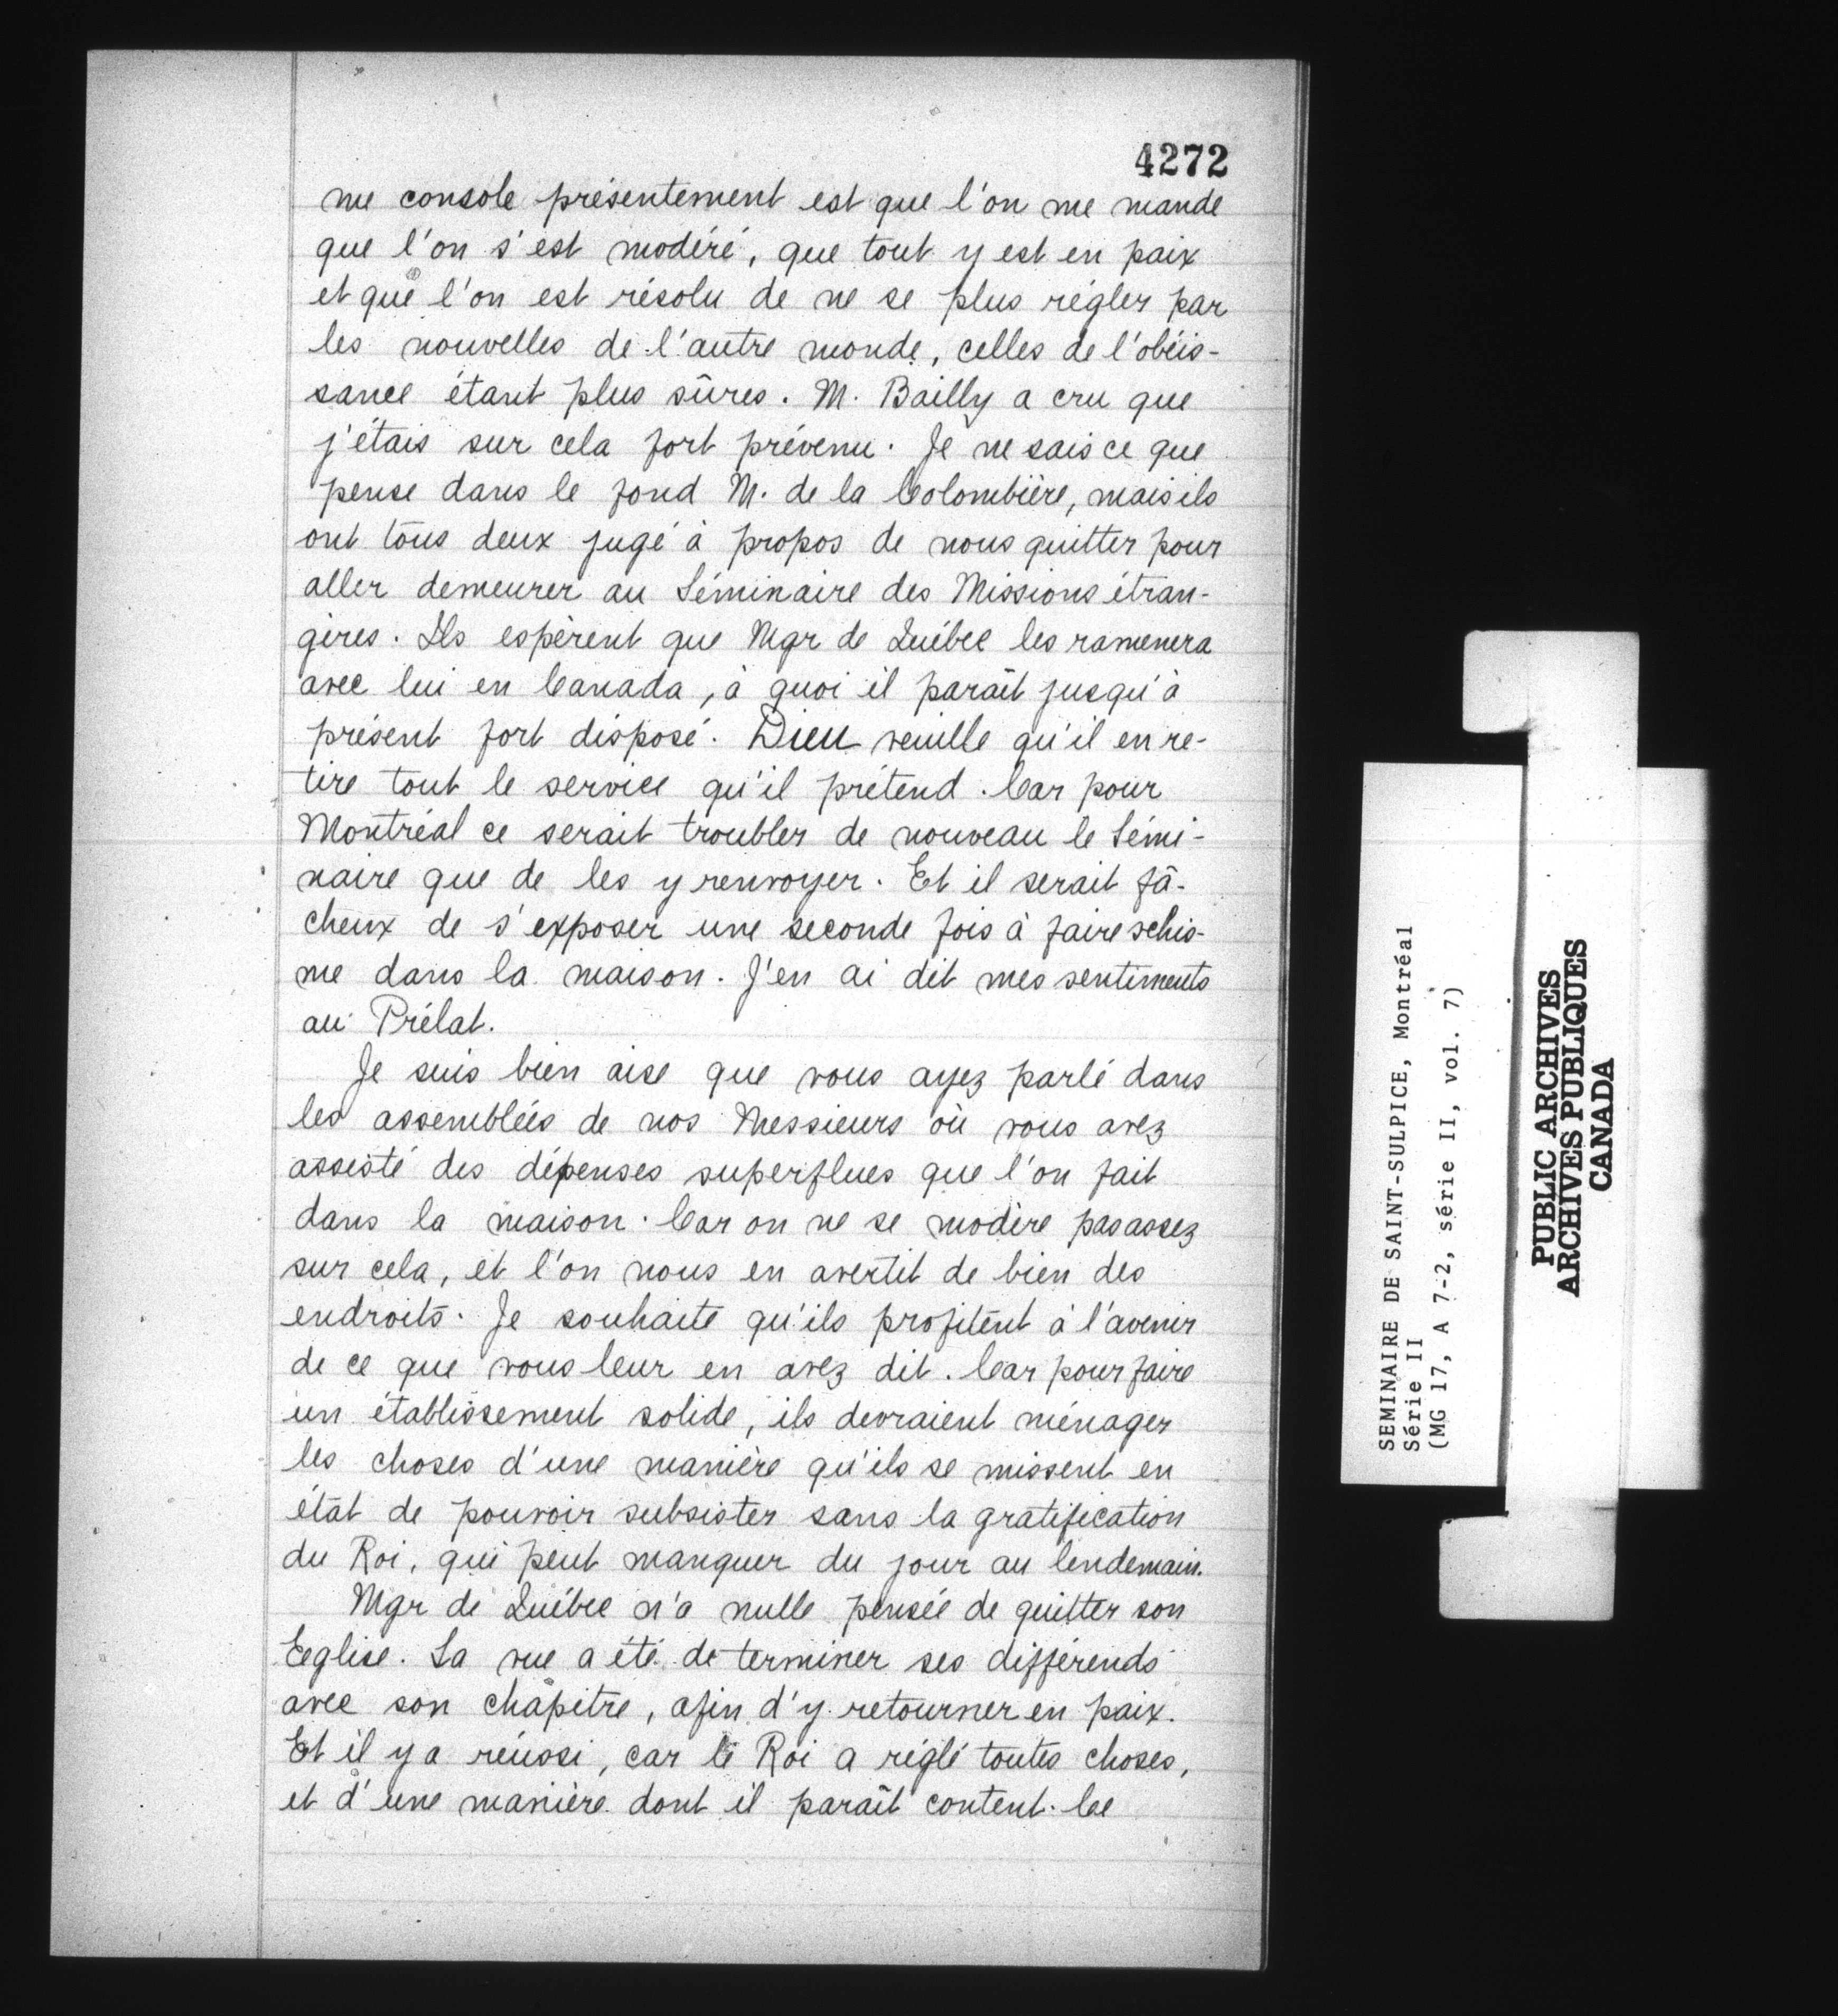 4272
me console présentement est que l'on me mande
que l'on s'est modéré, que tout y est en paix
et que l'on est résolu de ne se plus régler par
les nouvelles de l'autre monde, celles de l'obéis-
sance étant plus sûres. M. Bailly a cru que
j'étais sur cela fort prévenu. Je ne sais ce que
pense dans le fond M. de la Colombière, mais ils
ont tous deux jugé à propos de nous quitter pour
aller demeurer au Séminaire des Missions étran-
gères. Ils espèrent que Mgr de Québec les ramenera
avec lui en Canada, à quoi il paraît jusqu'à
présent fort disposé. Dieu veuille qu'il en re-
tire tout le service qu'il prétend. Car pour
Montréal ce serait troubler de nouveau le Sémi-
naire que de les y renvoyer. Et il serait fâ-
cheux de s'exposer une seconde fois à faire schis-
me dans la maison. J'en ai dit mes sentiments
au Prélat.
Je suis bien aise que vous ayez parlé dans
les assemblées de nos Messieurs où vous avez
assisté des dépenses superflues que l'on fait
dans la maison. Car on ne se modère pas assez
sur cela, et l'on nous en avertit de bien des
endroits. Je souhaite qu'ils profitent à l'avenir
de ce que vous leur en avez dit. Car pour faire
un établissement solide, ils devraient ménager
les choses d'une manière qu'ils se missent en
état de pouvoir subsister sans la gratification
du Roi, qui peut manquer du jour au lendemain.
Mgr de Québec n'a nulle pensée de quitter son
Eglise. Sa vue a été de terminer ses différends
avec son chapitre, afin d'y retourner en paix.
Et il y a réussi, car le Roi a réglé toutes choses,
et d'une manière dont il paraît content. Ce
SEMINAIRE DE SAINT-SULPICE, Montréal
Série II
(MG 17, A 7-2, série II, vol. 7)
PUBLIC ARCHIVES
ARCHIVES PUBLIQUES
CANADA